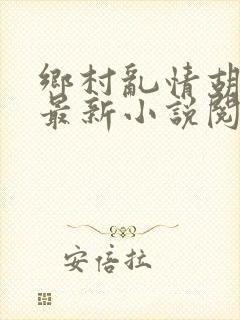 鄉村亂情胡
最新小說閱
安倍拉